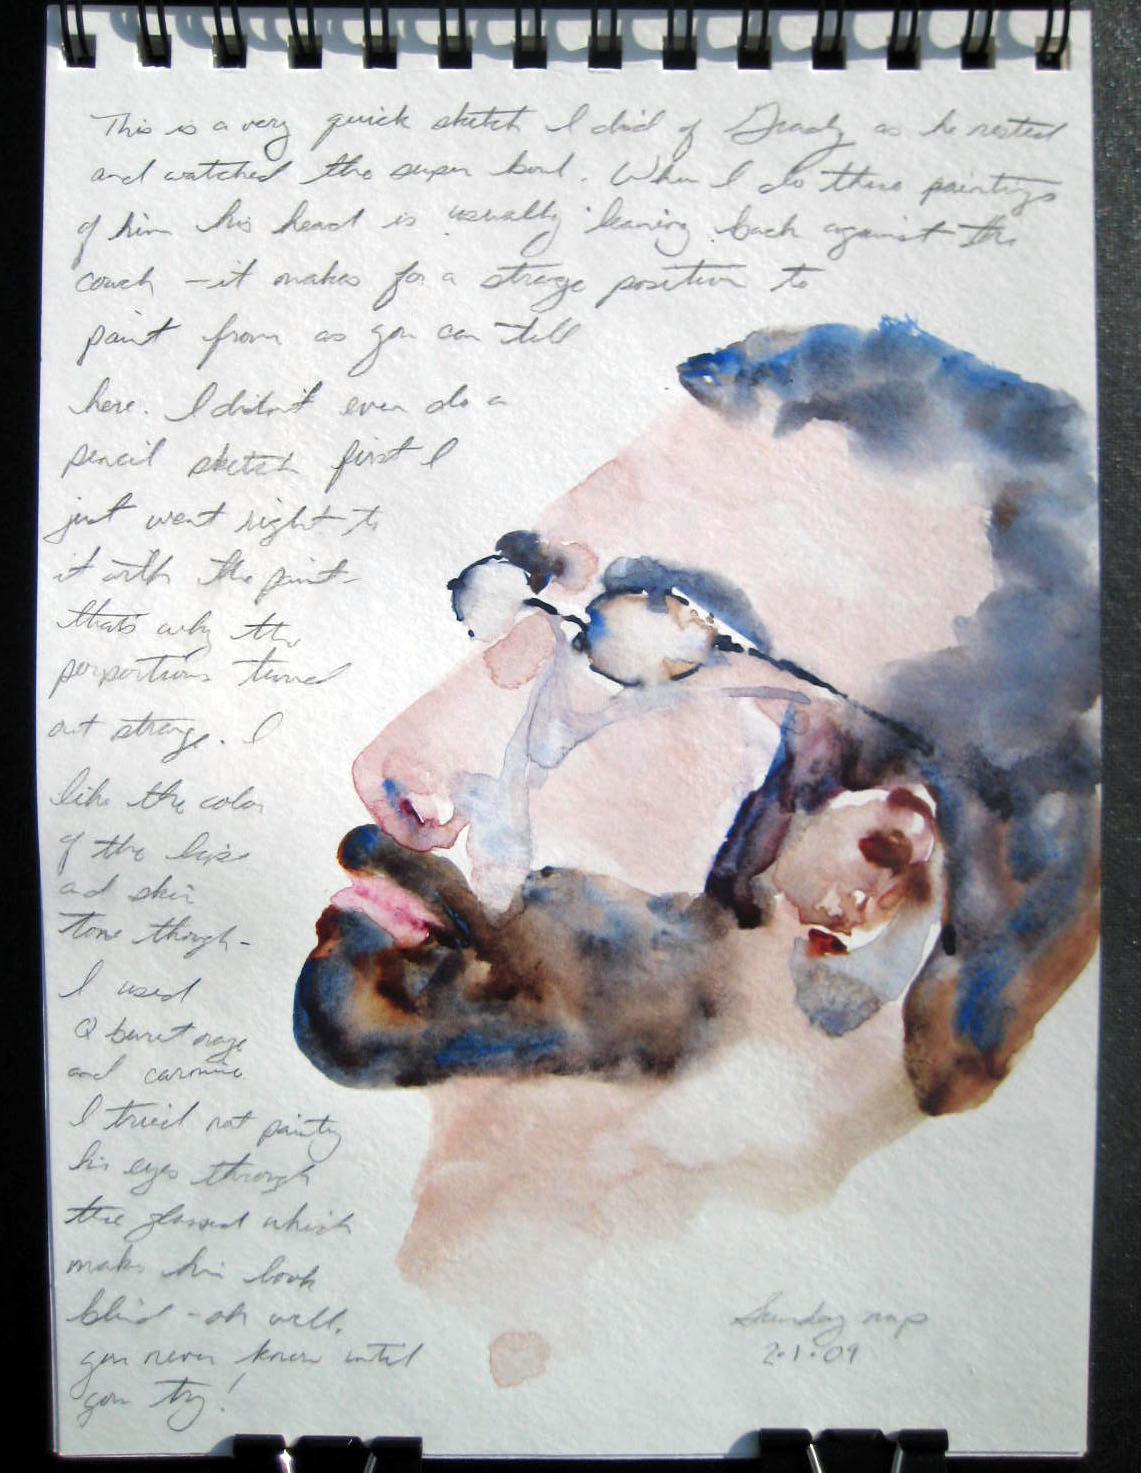 This is a very quick sketch I did of Grady as he rested
and watched the super bowl. When I do these paintings
of him his head is usually leaning back against the
couch - it makes for a strange position to
paint from as you can tell
here. I didn't even do a
pencil sketch first I
just went right to
it with the paint -
that's why the
porportions turned
out strange. I
like the color
of the lips
and skin
tone though -
I used
Q burnt orange
and carmine
I tried not painting
his eyes through
the glasses which
makes him look
blind - oh well,
you never know until
you try!
Sunday nap
2.1.09